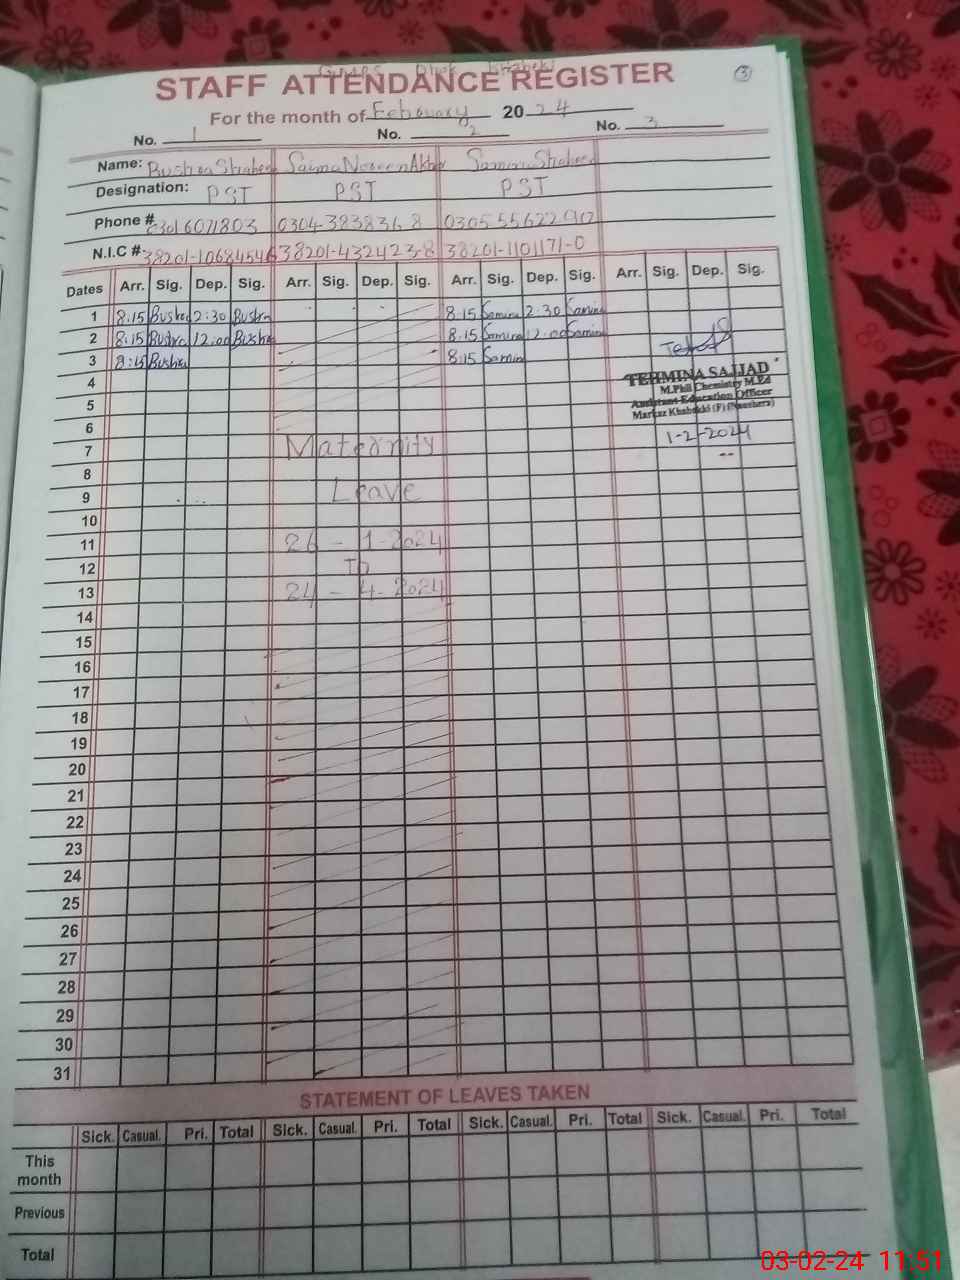 STAFF ATTENDANCE REGISTER
3
For the month of February 2024
No. 1 No. 2 No. 3
Name: Bushra Shaheen Saima Noreen Akhtar Samina Shaheen
Designation: PST PST PST
Phone # 03016071803 0304-3838368 0305
N.I.C #- 38201-1068454-6 38201-4324223-8 38201-1101171-0
Dates Arr. Sig. Dep. Sig. Arr. Sig. Dep. Sig. Arr. Sig. Dep. Sig. Arr. Sig. Dep. Sig.
1 8:15 Bushra 2:30 Bushra 8:15 Samina 2:30 Samina
2 8:15 Bushra 12:00 Bushra 8:15 Samina 12:00 Samina
3 8:15 Bushra 8:15 Samina
TEHMINA SAJJAD
4
M.Phil Chemistry M.Ed
5
Assistant Education Officer
Markaz Khabakki (F) (Naushera)
6
1-2-2024
7 Maternity
8
9 Leave
10
11 26-1-2024
12 To
13 24-4-2024
14
15
16
17
18
19
20
21
22
23
24
25
26
27
28
29
30
31
STATEMENT OF LEAVES TAKEN
Sick. Casual. Pri. Total Sick. Casual. Pri. Total Sick. Casual. Pri. Total Sick. Casual. Pri. Total
This
month
Previous
Total
03-02-24 11:51